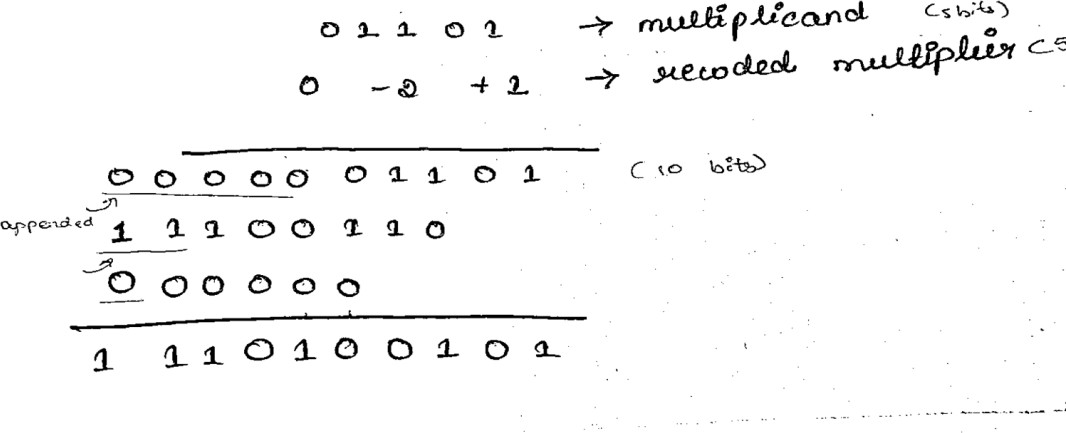 0 1 1 0 1 → multiplicand (5 bits)
0 -2 +1 → recoded multiplier (5
0 0 0 0 0 0 1 1 0 1 (10 bits)
appended 1 1 1 0 0 1 1 0
0 0 0 0 0 0
1 1 1 0 1 0 0 1 0 1